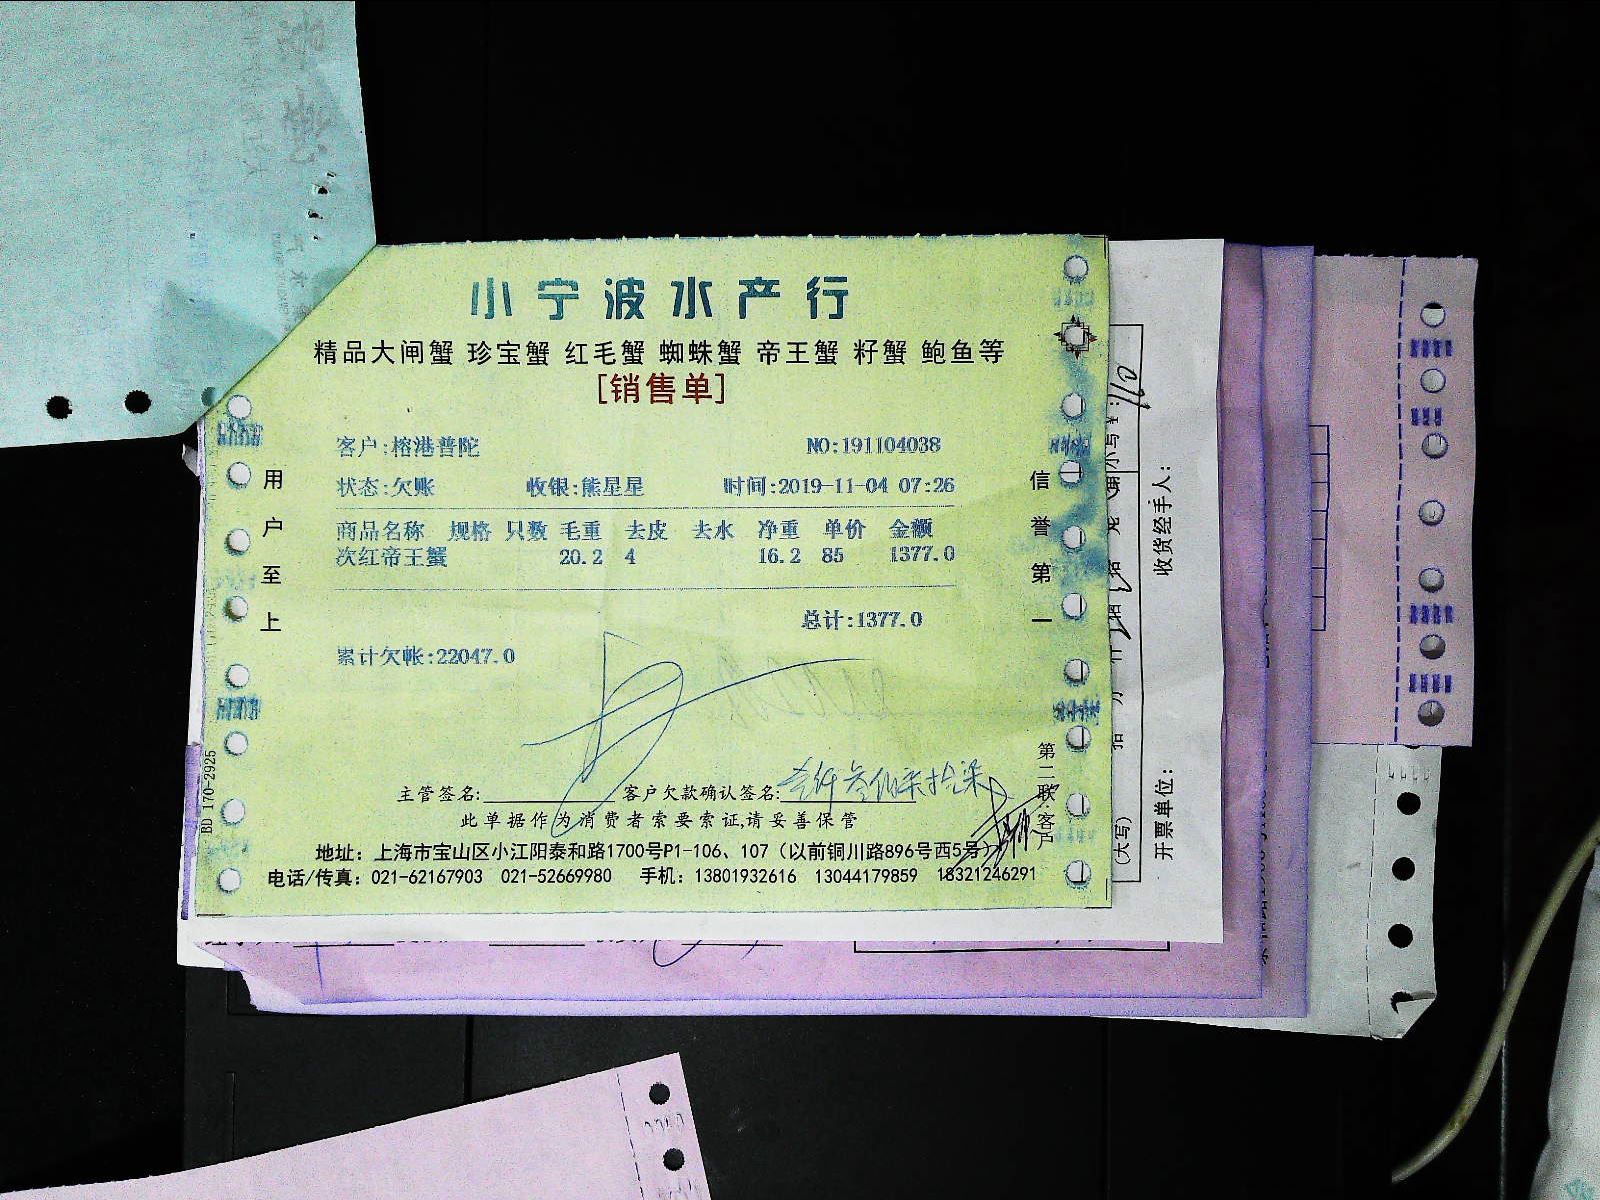 小宁波水产行
精品大闸蟹 珍宝蟹 红毛蟹 蜘蛛蟹 帝王蟹 籽蟹 鲍鱼等
[销售单]
客户:榕港普陀 NO:191104038
状态:欠账 收银:熊星星 时间:2019-11-04 07:26
商品名称 规格 只数 毛重 去皮 去水 净重 单价 金额
次红帝王蟹 20.2 4 16.2 85 1377.0
总计:1377.0
累计欠帐:22047.0
用户至上
信誉第一
第二联:客户
BD 170-2925
主管签名: 客户欠款确认签名:壹仟叁佰柒拾柒
此单据作为消费者索要索证,请妥善保管
地址：上海市宝山区小江阳泰和路1700号P1-106、107（以前铜川路896号西5号）
电话/传真：021-62167903 021-52669980 手机：13801932616 13044179859 18321246291
小写¥:
(大写)
收货经手人：
开票单位：